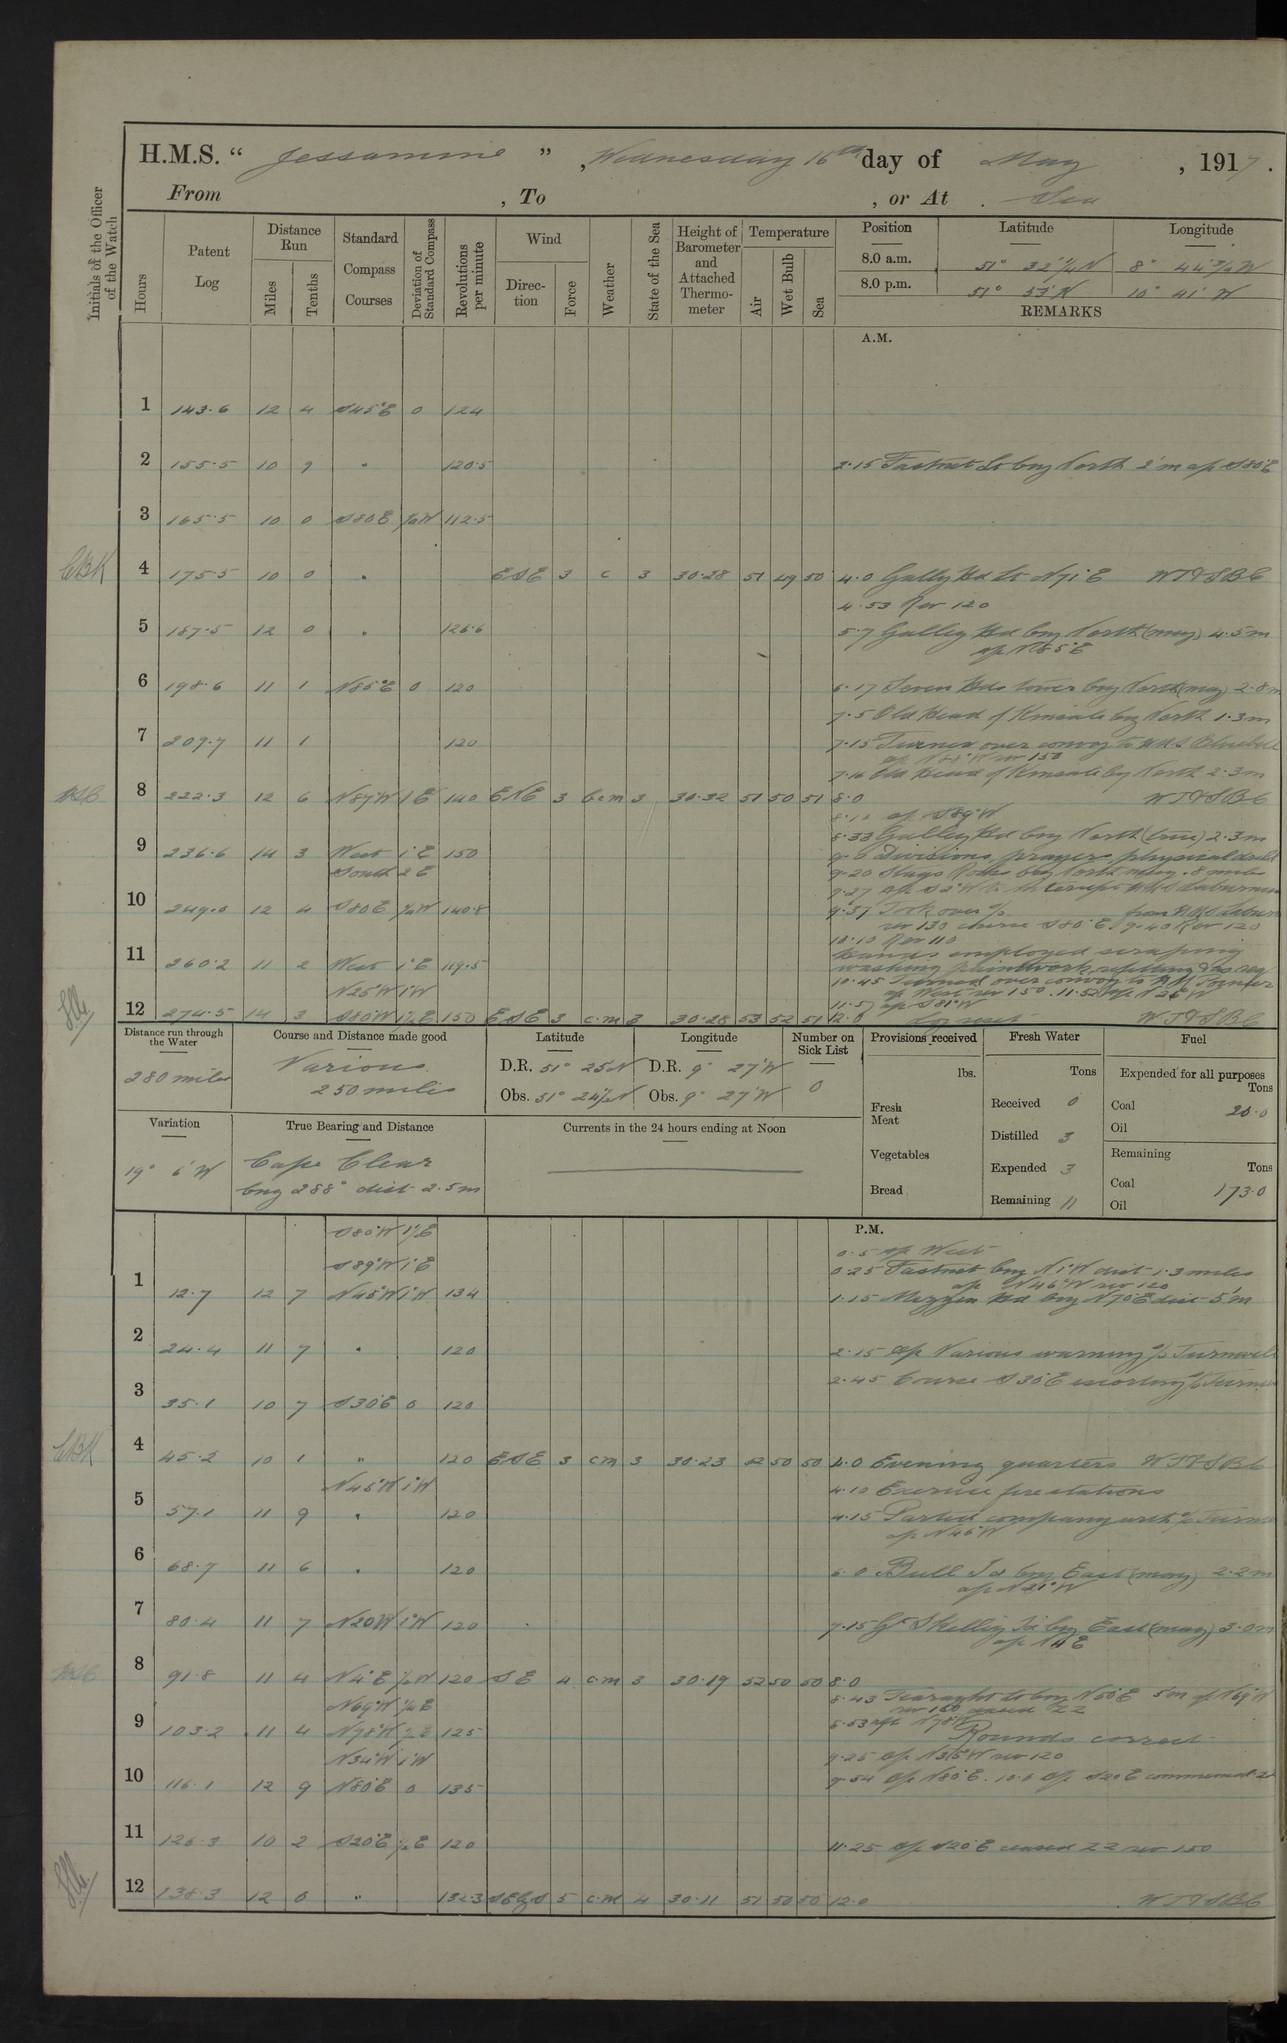 H.M.S. “ Jessamine ” , Wednesday 16th day of May , 1917 .
From , To , or At . Sea
Initials of the Officer of the Watch
Hours
Patent Log
Distance Run
Miles
Tenths
Standard Compass Courses
Deviation of Standard Compass
Revolutions per minute
Wind
Direction
Force
Weather
State of the Sea
Height of Barometer and Attached Thermometer
Temperature
Air
Wet Bulb
Sea
Position Latitude Longitude
8.0 a.m. 51° 32'¼ N 8° 44'¾ W
8.0 p.m. 51° 53' N 10° 41' W
REMARKS
A.M.
1 143.6 12 4 S45°E 0 124
2 155.5 10 9 " 120.5 2.15 Fastnet Lt brg North 2'm a/c S80°E
3 165.5 10 0 S80E ½W 112.5
CBK 4 175.5 10 0 " ESE 3 c 3 30.28 51 49 50 4.0 Galley Hd Lt N71°E WT&SBC
4.53 Rev 120
5 187.5 12 0 " 126.6 5.7 Galley Hd brg North (mag) 4.5 m
a/c N85°E
6 198.6 11 1 N85°E 0 120 6.17 Seven Hds tower brg North (mag) 2.8 m
7.5 Old Head of Kinsale brg North 1.3 m
7 209.7 11 1 120 7.15 Turned over convoy to HMS Bluebell
rev 150
7.16 Old Head of Kinsale brg North 2.3 m
8 222.3 12 6 N87°W 1E 140 ENE 3 bcm 3 30.32 51 50 51 8.0 WT&SBC
8.10 a/c S89°W
8.33 Galley Hd brg North (true) 2.3 m
9 236.6 14 3 West 1°E 150 9.0 Divisions, prayers, physical drill
South 2E 9.20 Stags Rocks brg North mag .8 mile
9.27 a/c S2°W to intercept HMS Laburnum
10 249.0 12 4 S80E ½W 140.8 9.37 Took over from HMS Laburnum
rev 130 course S80°E. 9.40 Rev 120
10.10 Rev 110
Hands employed scraping
11 260.2 11 2 West 1°E 119.5 washing paintwork, refitting & as req
10.45 Turned over convoy to HM
N25W 1°W a/c West rev 150. 11.52 a/c N26°W
11.57 a/c S81°W
12 274.5 14 3 S80°W 1½E 150 ESE 3 c.m 3 30.28 53 52 51 12.0 Log reset WT&SBC
Distance run through the Water
280 miles
Course and Distance made good
Various
250 miles
Latitude
D.R. 51° 25 N
Obs. 51° 24½ N
Longitude
D.R. 9° 27' W
Obs. 9° 27' W
Number on Sick List
0
Provisions received
lbs.
Fresh Meat
Vegetables
Bread
Fresh Water
Tons
Received 0
Distilled 3
Expended 3
Remaining 11
Fuel
Expended for all purposes
Tons
Coal 20.0
Oil
Remaining
Tons
Coal 173.0
Oil
Variation
19° 6' W
True Bearing and Distance
Cape Clear
brg 288° dist 2.5 m
Currents in the 24 hours ending at Noon
P.M.
S80°W 1½E 0.5 a/c West
S89°W 1°E 0.25 Fastnet brg N1°W dist 1.3 miles
a/c N46°W rev 120
1 12.7 12 7 N45°W 1°W 134 1.15 Mizzen Hd brg N70°E dist 5'm
2 24.4 11 7 " 120 2.15 a/c Various warning
2.45 Course S30°E escorting
3 35.1 10 7 S30E 0 120
CBK 4 45.2 10 1 " 120 ESE 3 cm 3 30.23 52 50 50 4.0 Evening quarters WT&SBC
N45°W 1°W 4.10 Exercise fire stations
5 57.1 11 9 " 120 4.15 Parted company with
a/c N46°W
6 68.7 11 6 " 120 6.0 Bull Id brg East (mag) 2.2 m
a/c N21°W
7 80.4 11 7 N20W 1°W 120 7.15 Gt Skellig Id brg East (mag) 3.0 m
a/c N4E
8 91.8 11 4 N4°E ½W 120 SE 4 c.m 3 30.19 52 50 50 8.0
N69°W ½E 8.43 Tearaght Lt brg N50°E 5m a/c N69°W
rev 150 ceased ZZ
9 103.2 11 4 N78°W ½E 125 8.53 a/c N78°W Rounds correct
N34°W 1°W 9.25 a/c N35°W rev 120
10 116.1 12 9 N80°E 0 135 9.54 a/c N80°E. 10.0 a/c S20°E commenced ZZ
11 126.3 10 2 S20°E ½E 120 11.25 a/c S20°E ceased ZZ rev 150
12 138.3 12 0 " 132.3 SEbyS 5 c.m 4 30.11 51 50 50 12.0 WT&SBC